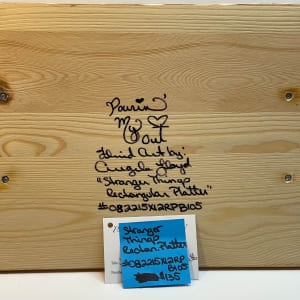 Pourin'
My ♡ Out
Fluid Art by:
Angela Lloyd
"Stranger Things
Rectangular Platter"
#082215X12RPB105
Stranger
Things
Rectan. Platter
#082215X12RP
B105
$135